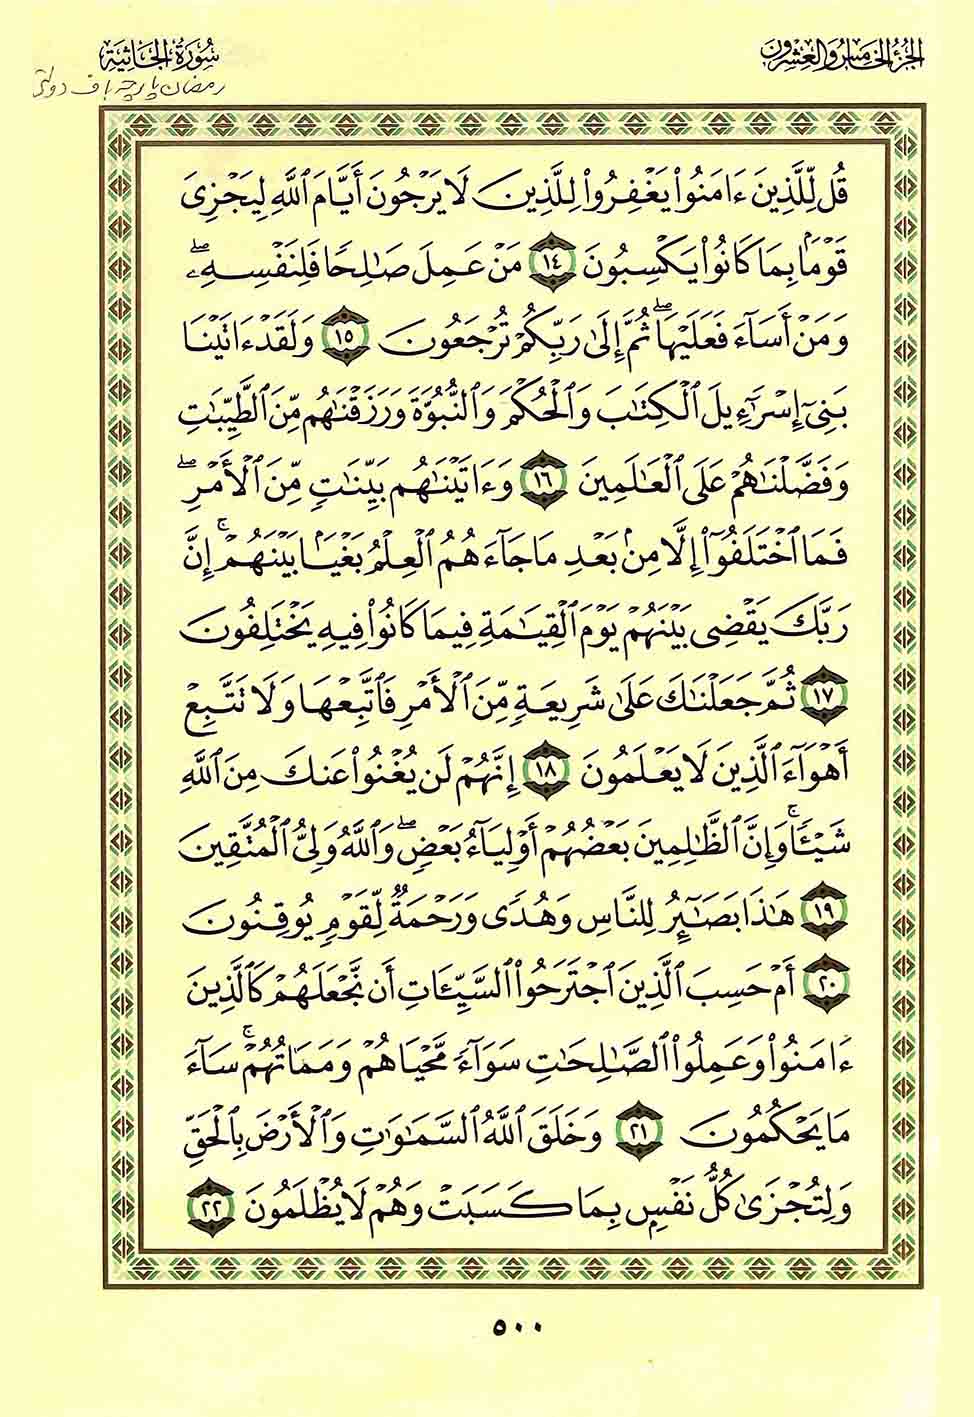 الجزء الخامس والعشرون
سورة الجاثية
رمضان پارچه باف دولتی
قُل لِّلَّذِينَ ءَامَنُوا۟ يَغْفِرُوا۟ لِلَّذِينَ لَا يَرْجُونَ أَيَّامَ ٱللَّهِ لِيَجْزِىَ
قَوْمًۢا بِمَا كَانُوا۟ يَكْسِبُونَ ١٤ مَنْ عَمِلَ صَٰلِحًا فَلِنَفْسِهِۦ ۖ
وَمَنْ أَسَآءَ فَعَلَيْهَا ۖ ثُمَّ إِلَىٰ رَبِّكُمْ تُرْجَعُونَ ١٥ وَلَقَدْ ءَاتَيْنَا
بَنِىٓ إِسْرَٰٓءِيلَ ٱلْكِتَٰبَ وَٱلْحُكْمَ وَٱلنُّبُوَّةَ وَرَزَقْنَٰهُم مِّنَ ٱلطَّيِّبَٰتِ
وَفَضَّلْنَٰهُمْ عَلَى ٱلْعَٰلَمِينَ ١٦ وَءَاتَيْنَٰهُم بَيِّنَٰتٍ مِّنَ ٱلْأَمْرِ ۖ
فَمَا ٱخْتَلَفُوٓا۟ إِلَّا مِنۢ بَعْدِ مَا جَآءَهُمُ ٱلْعِلْمُ بَغْيًۢا بَيْنَهُمْ ۚ إِنَّ
رَبَّكَ يَقْضِى بَيْنَهُمْ يَوْمَ ٱلْقِيَٰمَةِ فِيمَا كَانُوا۟ فِيهِ يَخْتَلِفُونَ
١٧ ثُمَّ جَعَلْنَٰكَ عَلَىٰ شَرِيعَةٍ مِّنَ ٱلْأَمْرِ فَٱتَّبِعْهَا وَلَا تَتَّبِعْ
أَهْوَآءَ ٱلَّذِينَ لَا يَعْلَمُونَ ١٨ إِنَّهُمْ لَن يُغْنُوا۟ عَنكَ مِنَ ٱللَّهِ
شَيْـًٔا ۚ وَإِنَّ ٱلظَّٰلِمِينَ بَعْضُهُمْ أَوْلِيَآءُ بَعْضٍ ۖ وَٱللَّهُ وَلِىُّ ٱلْمُتَّقِينَ
١٩ هَٰذَا بَصَٰٓئِرُ لِلنَّاسِ وَهُدًى وَرَحْمَةٌ لِّقَوْمٍ يُوقِنُونَ
٢٠ أَمْ حَسِبَ ٱلَّذِينَ ٱجْتَرَحُوا۟ ٱلسَّيِّـَٔاتِ أَن نَّجْعَلَهُمْ كَٱلَّذِينَ
ءَامَنُوا۟ وَعَمِلُوا۟ ٱلصَّٰلِحَٰتِ سَوَآءً مَّحْيَاهُمْ وَمَمَاتُهُمْ ۚ سَآءَ
مَا يَحْكُمُونَ ٢١ وَخَلَقَ ٱللَّهُ ٱلسَّمَٰوَٰتِ وَٱلْأَرْضَ بِٱلْحَقِّ
وَلِتُجْزَىٰ كُلُّ نَفْسٍۭ بِمَا كَسَبَتْ وَهُمْ لَا يُظْلَمُونَ ٢٢
٥٠٠